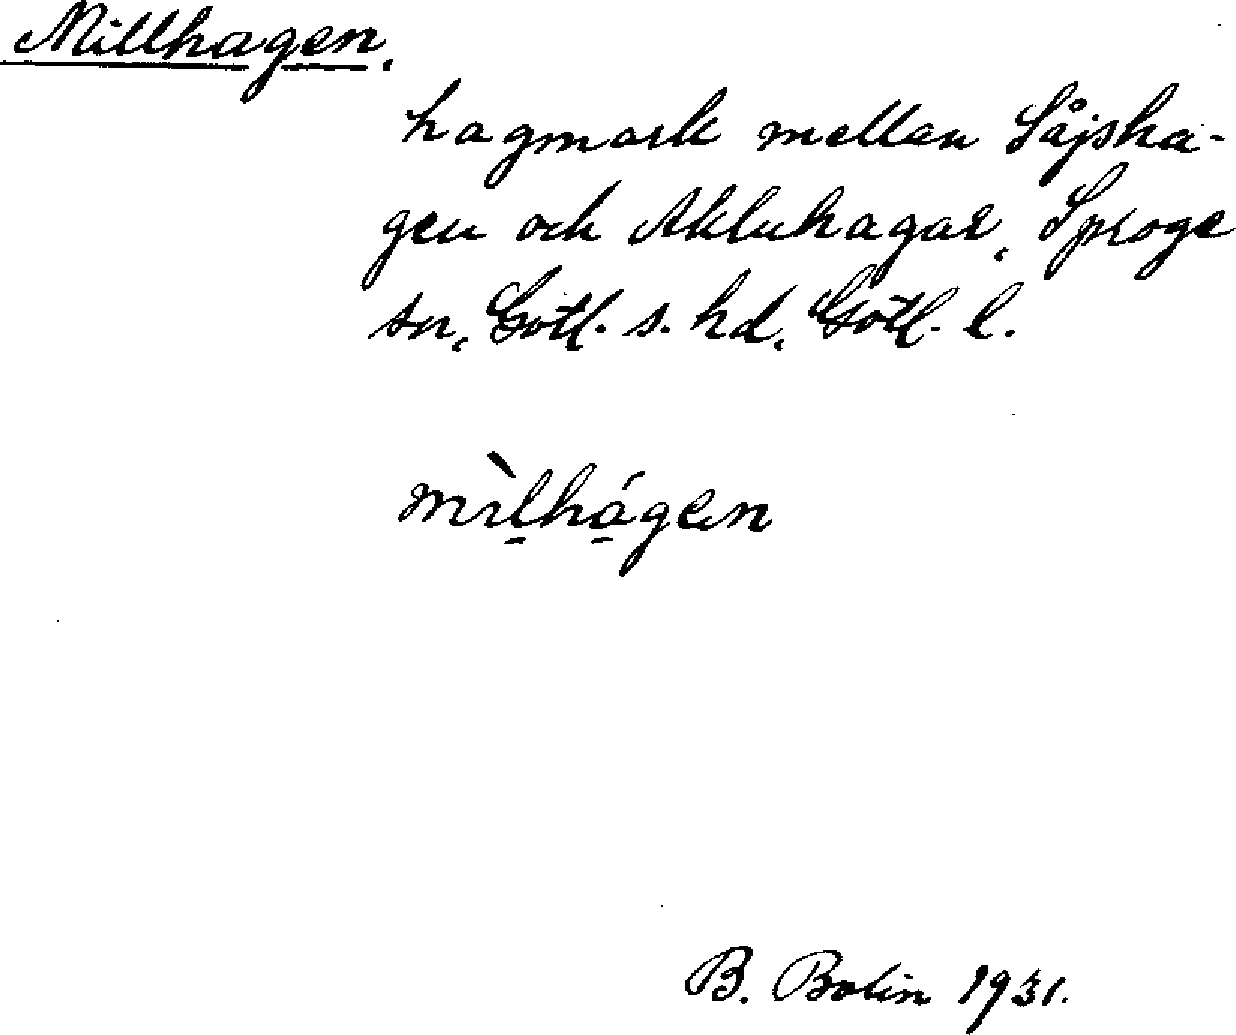 Millhagen.
hagmark mellan Såjsha-
gen och Akluhagar, Sproge
sn, Gotl. s. hd, Gotl. l.
mìlhágen
B. Bolin 1931.